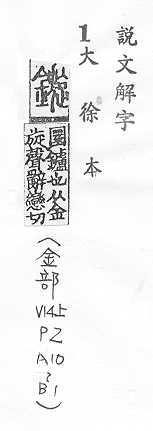 説文解字
1大徐本
鏇
圜鑪也从金
旋聲辭戀切
(金部
V14上
P2
A10
~
B1)